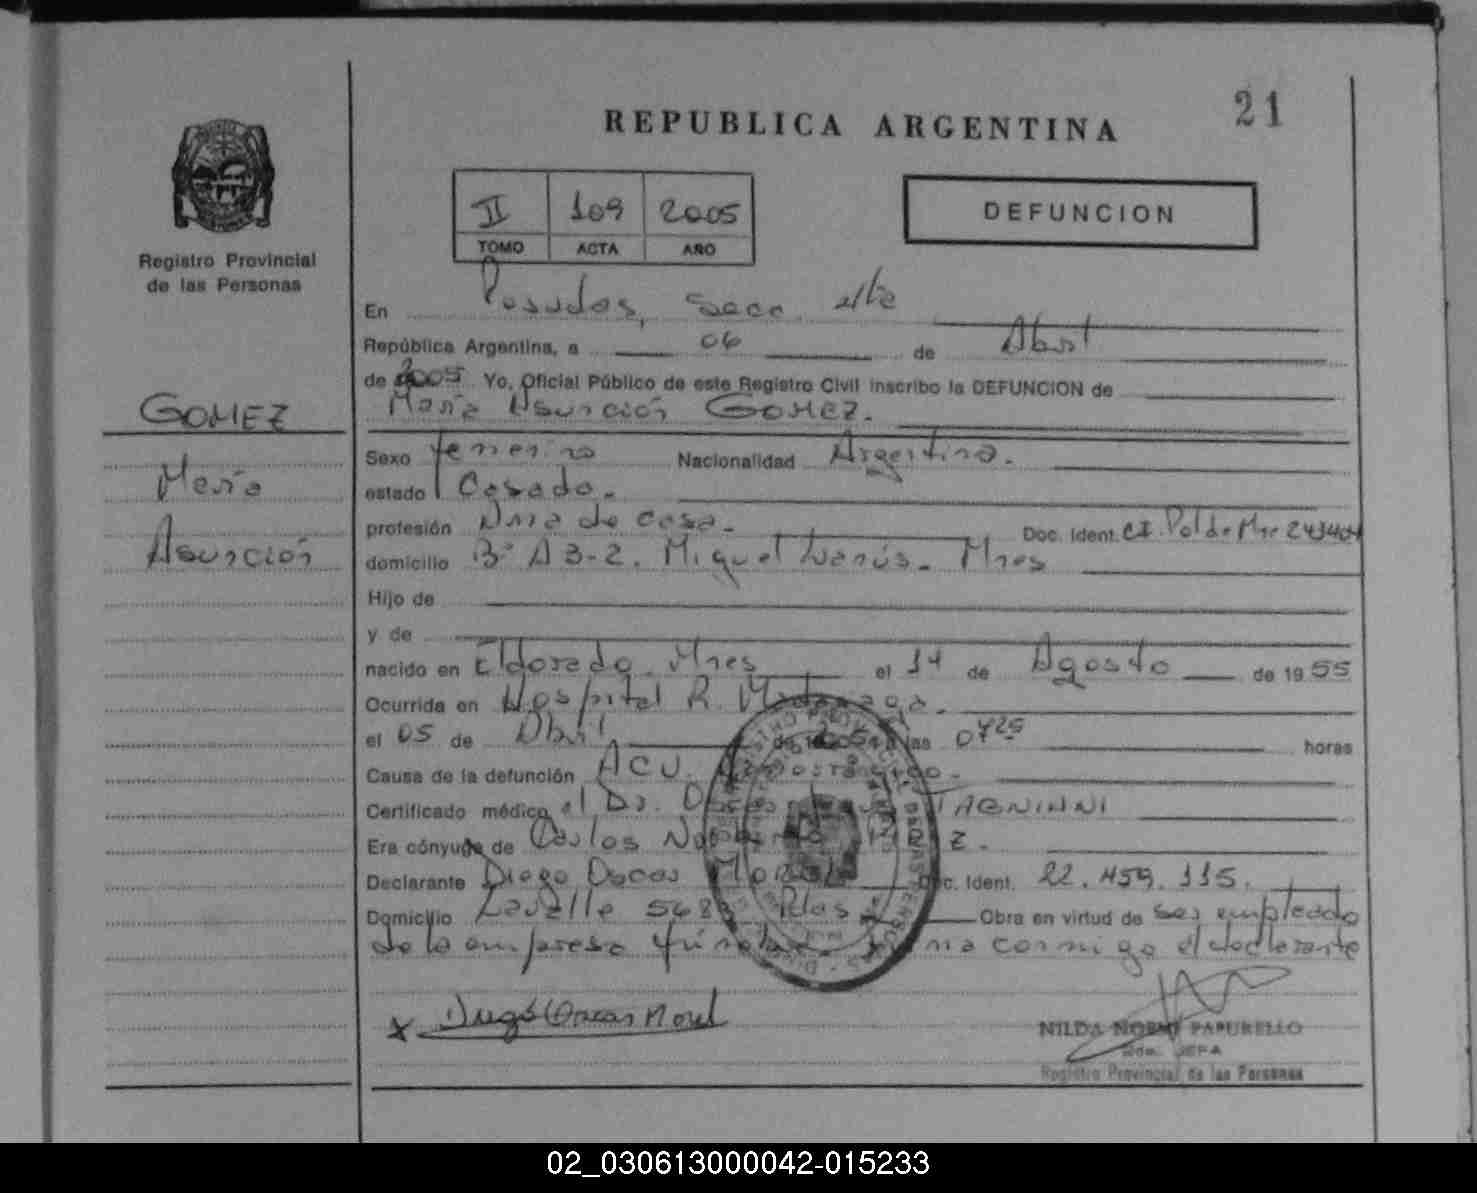 21
REPUBLICA ARGENTINA
II 109 2005
TOMO ACTA AÑO
DEFUNCION
Registro Provincial
de las Personas
GOMEZ
María
Asunción
En Posadas, Secc. 4ta
República Argentina, a 06 de Abril
de 2005. Yo, Oficial Público de este Registro Civil inscribo la DEFUNCION de
María Asunción GOMEZ.
Sexo femenino Nacionalidad Argentina.
estado Casada.
profesión Ama de casa. Doc. Ident. C.I. Pol de Mnes 243404
domicilio Bº A 3-2. Miguel Lanús. Mnes
Hijo de
y de
nacido en Eldorado Mnes el 14 de Agosto de 1955
Ocurrida en Hospital R. Madariaga.
el 05 de Abril de 2005 a las 07 25 horas
Causa de la defunción ACV.
Certificado médico el Dr.
Era cónyuge de Carlos
Declarante Diego Oscar Morel Doc. Ident. 22.459.115.
Domicilio Lavalle 568 Pdas Obra en virtud de ser empleado
de la empresa fúnebre. Firma conmigo el declarante
x Diego Oscar Morel
NILDA NOEMI PAPURELLO
JEFA
Registro Provincial de las Personas
02_030613000042-015233